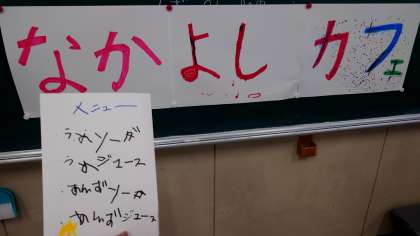 なかよしカフェ
メニュー
・うめソーダ
・うめジュース
・あんずソーダ
・あんずジュース